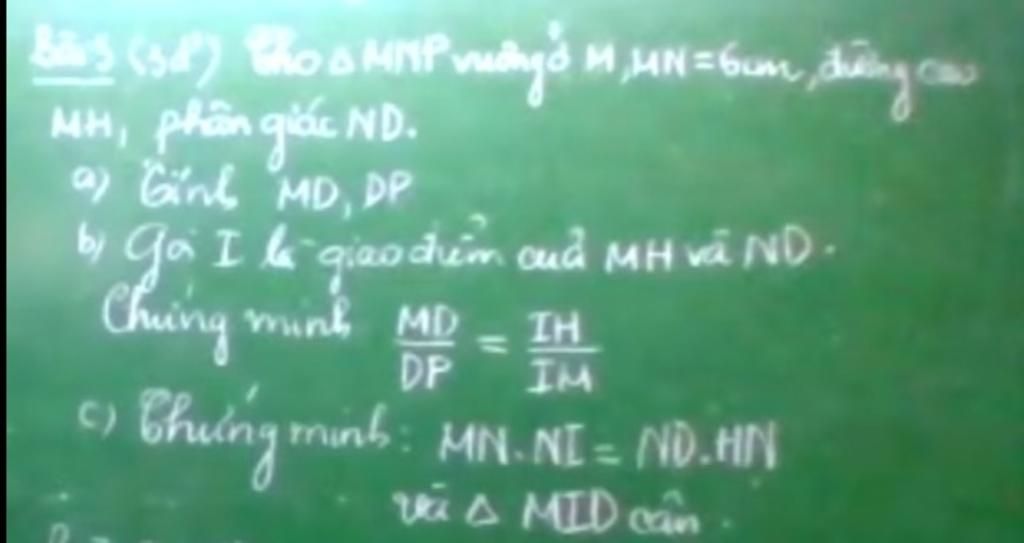 Bài 3 (3đ) Cho △ MNP vuông ở M, MN = 6cm, đường cao
MH, phân giác ND.
a) Tính MD, DP
b) Gọi I là giao điểm của MH và ND.
Chứng minh MD/DP = IH/IM
c) Chứng minh: MN.NI = ND.HN
và △ MID cân.